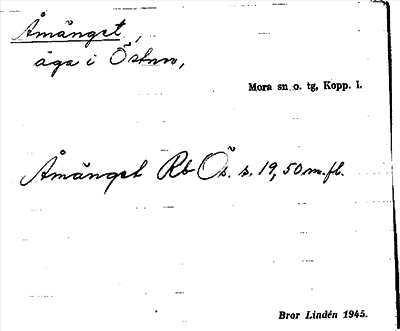 Åmänget,
äga i Östnor,
Mora sn. o. tg, Kopp. l.
Åmänget Rb Ös. s. 19, 50 m. fl.
Bror Lindén 1945.